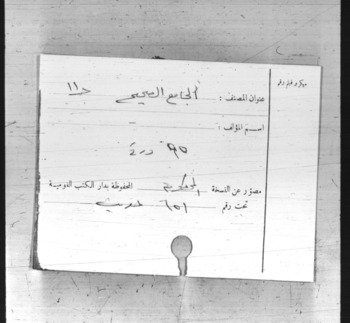 ميكروفيلم رقم
عنوان المصنف : الجامع الصحيح جـ ١١
اسم المؤلف :
٩٥ ورقة
مصور عن النسخة المحفوظة بدار الكتب القومية
تحت رقم ٦٥١ حديث